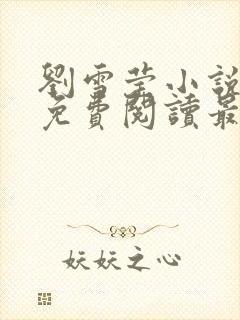 劉雪莹小說
免費閱讀最
妖妖之心